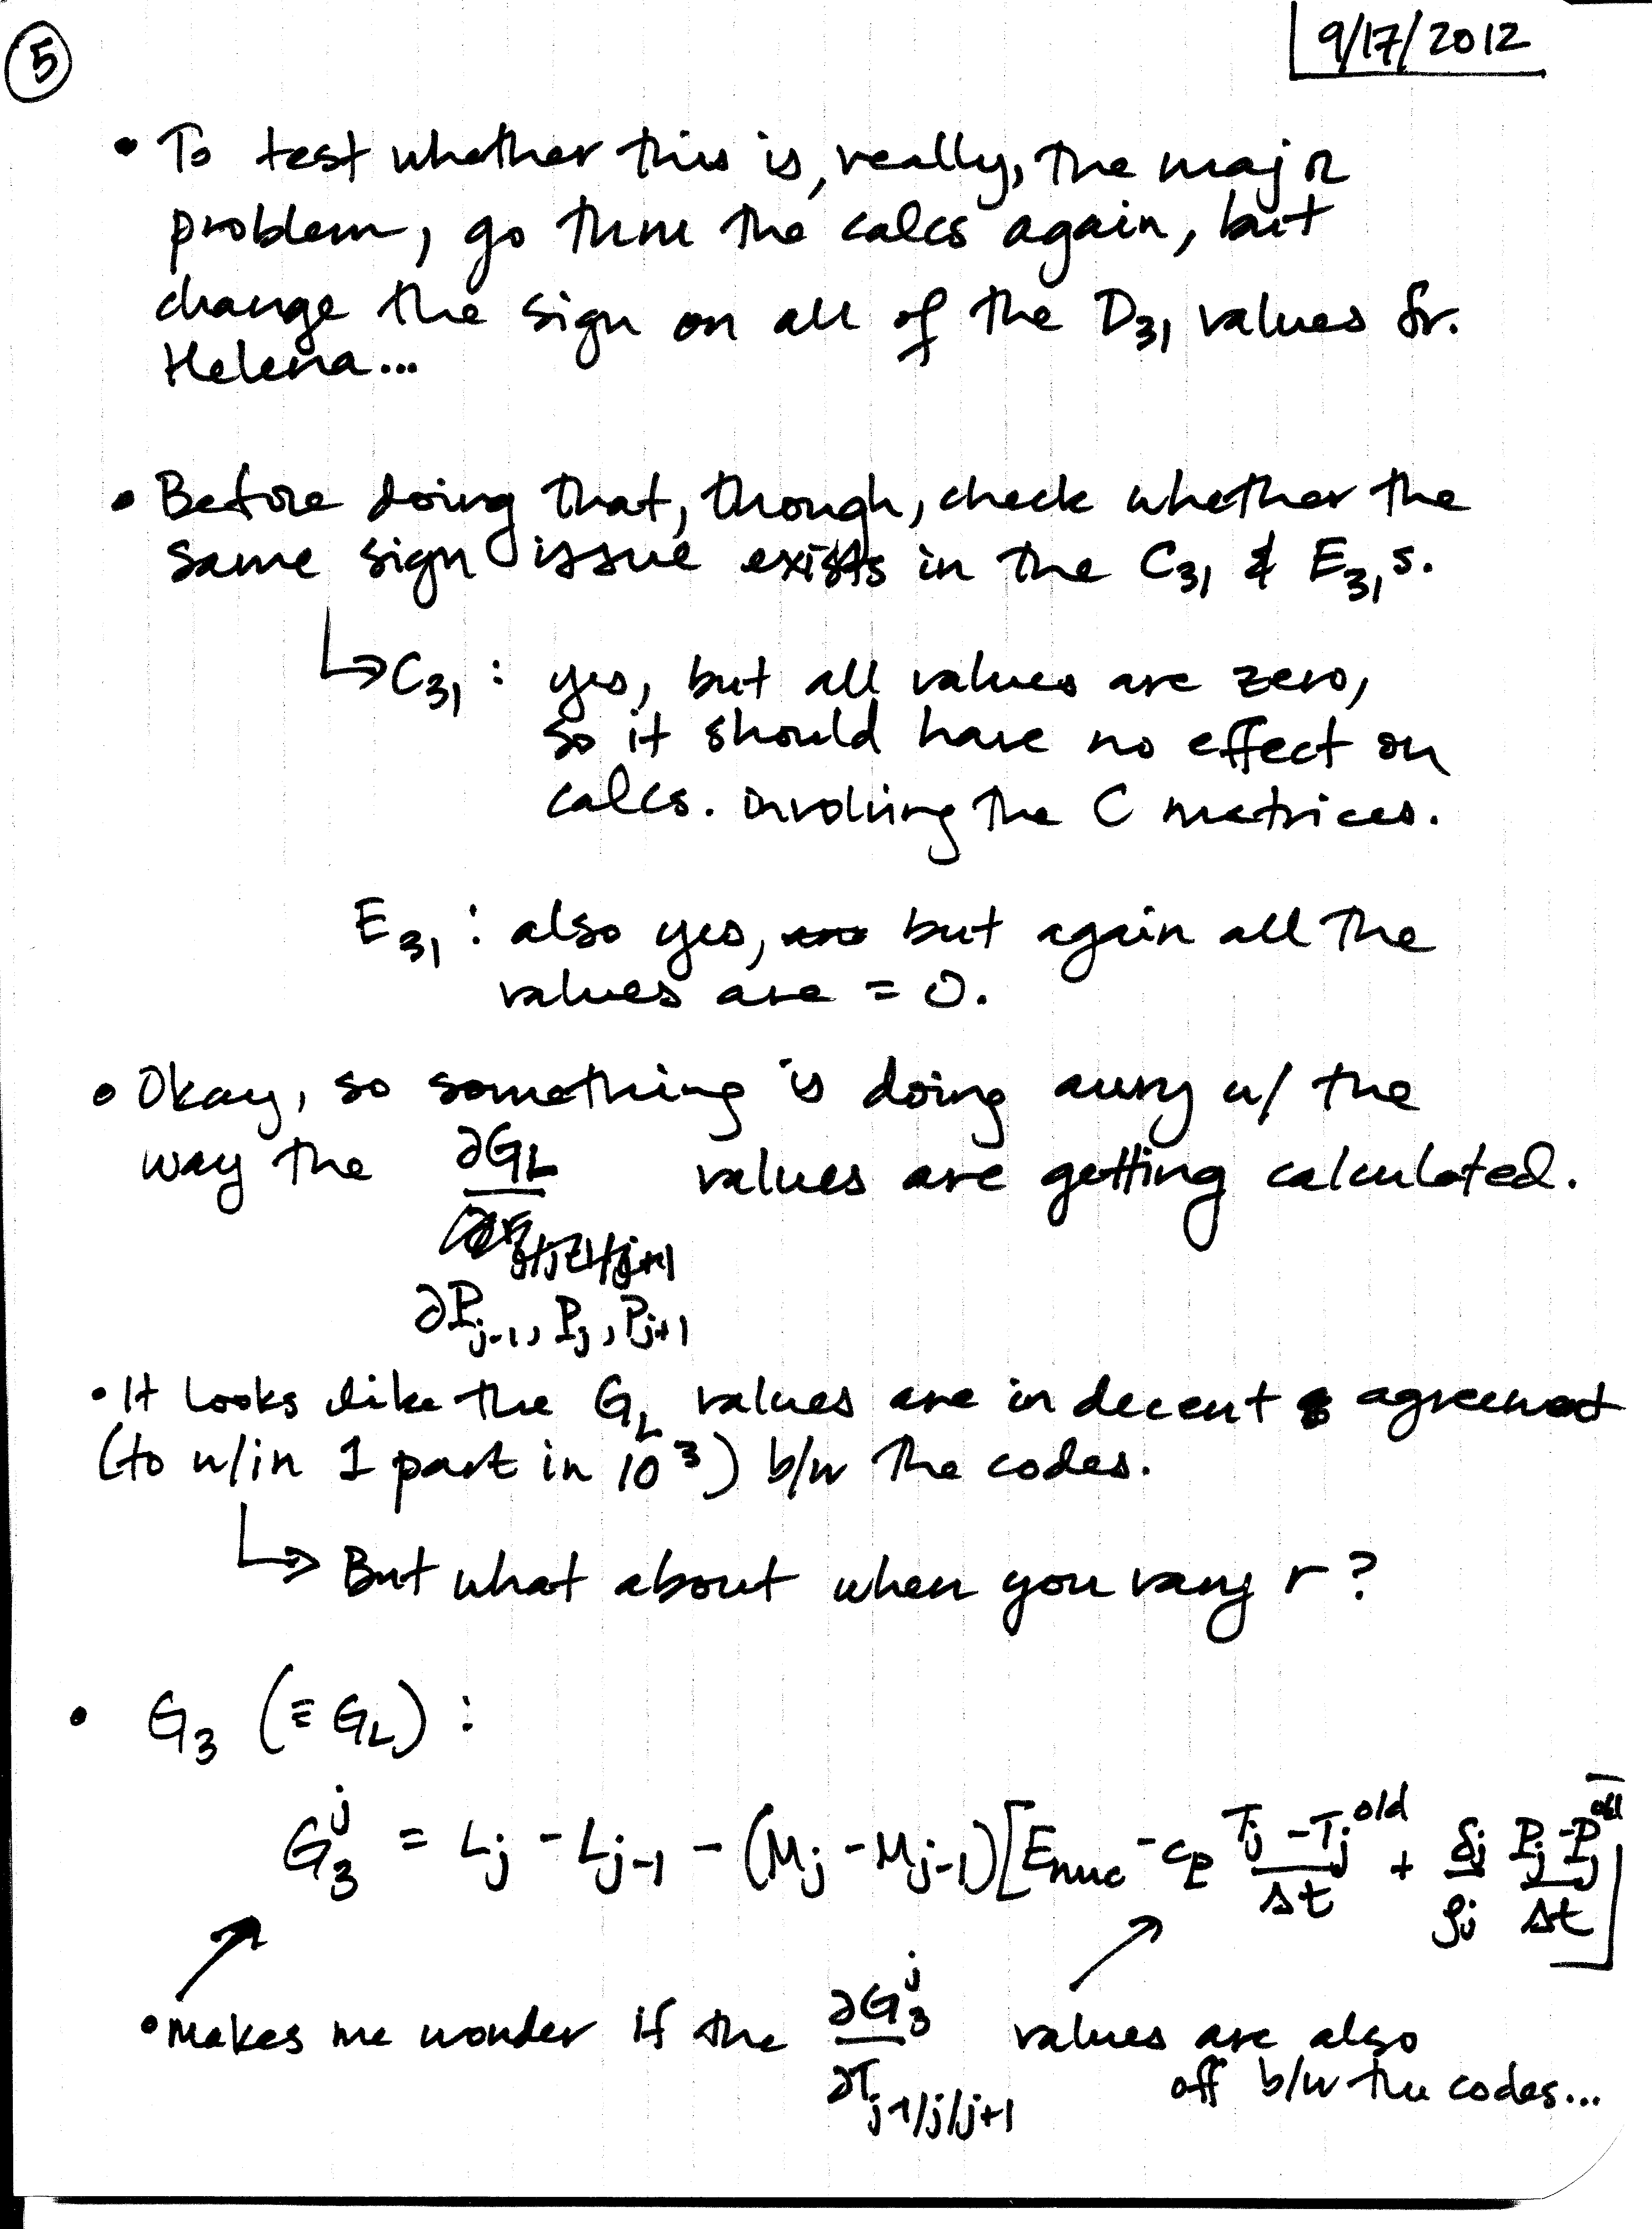 5
9/17/2012
• To test whether this is, really, the major
problem, go thru the calcs again, but
change the sign on all of the D₃₁ values fr.
Helena...
• Before doing that, though, check whether the
same sign issue exists in the C₃₁ & E₃₁s.
↳ C₃₁ : yes, but all values are zero,
so it should have no effect on
calcs. involving the C matrices.
E₃₁ : also yes, but again all the
values are = 0.
• Okay, so something is doing awry w/ the
way the ∂G_L values are getting calculated.
∂P_{j-1}, P_j, P_{j+1}
• It looks like the G_L values are in decent agreement
(to w/in 1 part in 10³) b/w the codes.
↳ But what about when you vary r?
• G₃ (≡ G_L) :
G₃ʲ = L_j - L_{j-1} - (M_j - M_{j-1}) [E_nuc - c_P (T_j - T_j^old)/Δt + δ_j/ρ_j (P_j - P_j^old)/Δt]
• Makes me wonder if the ∂G₃ʲ/∂T_{j-1/j/j+1} values are also
off b/w the codes...